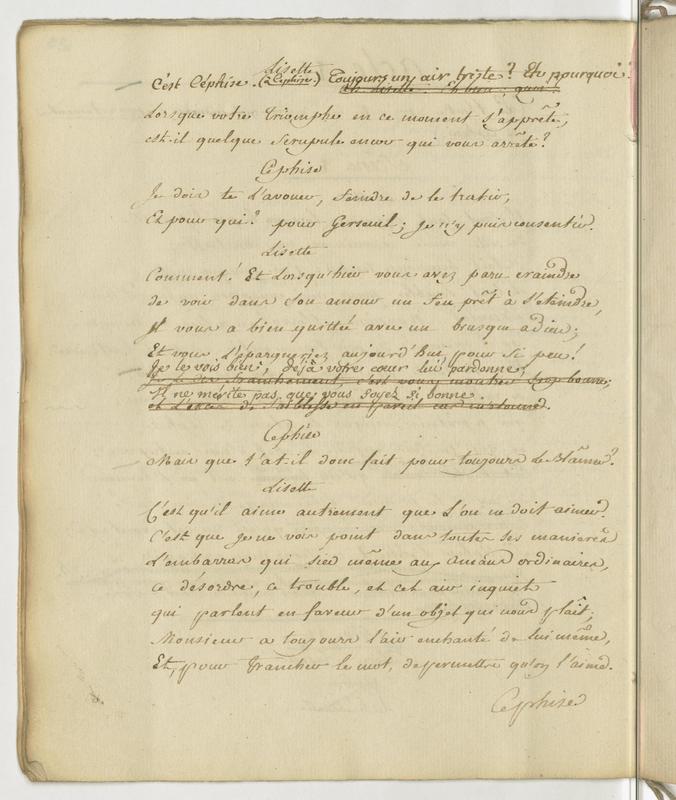 Lisette
C'est Céphise. (à Céphise.) Toujours un air triste? Et pourquoi?
Ah Lisette! Eh bien, quoi
Lorsque votre Triomphe en ce moment s'apprête,
est-il quelque scrupule encor qui vous arrête?
Cephise
Je dois te l'avouer, feindre de le trahir,
Et pour qui? pour Gerseuil; je n'y puis consentir.
Lisette
Comment! Et lorsqu'hier vous avez paru craindre
de voir dans son amour un feu prêt à s'éteindre,
Il vous a bien quittée avec un brusque adieu;
Et vous l'épargneriez aujourd'hui, pour si peu!
Je le vois bien, déjà votre cœur lui pardonne;
franchement, c'est vous montrer trop bonne;
Il ne mérite pas que vous soyez si bonne.
Cephise
Mais que t'a-t-il donc fait pour toujours le blâmer?
Lisette
C'est qu'il aime autrement que l'on ne doit aimer.
C'est que je ne vois point dans toutes ses manieres
L'embarras qui sied même aux Amans ordinaires,
ce désordre, ce trouble, et cet air inquiet
qui parlent en faveur d'un objet qui nous plaît;
Monsieur a toujours l'air enchanté de lui même,
Et, pour trancher le mot, de permettre qu'on l'aime.
Cephise